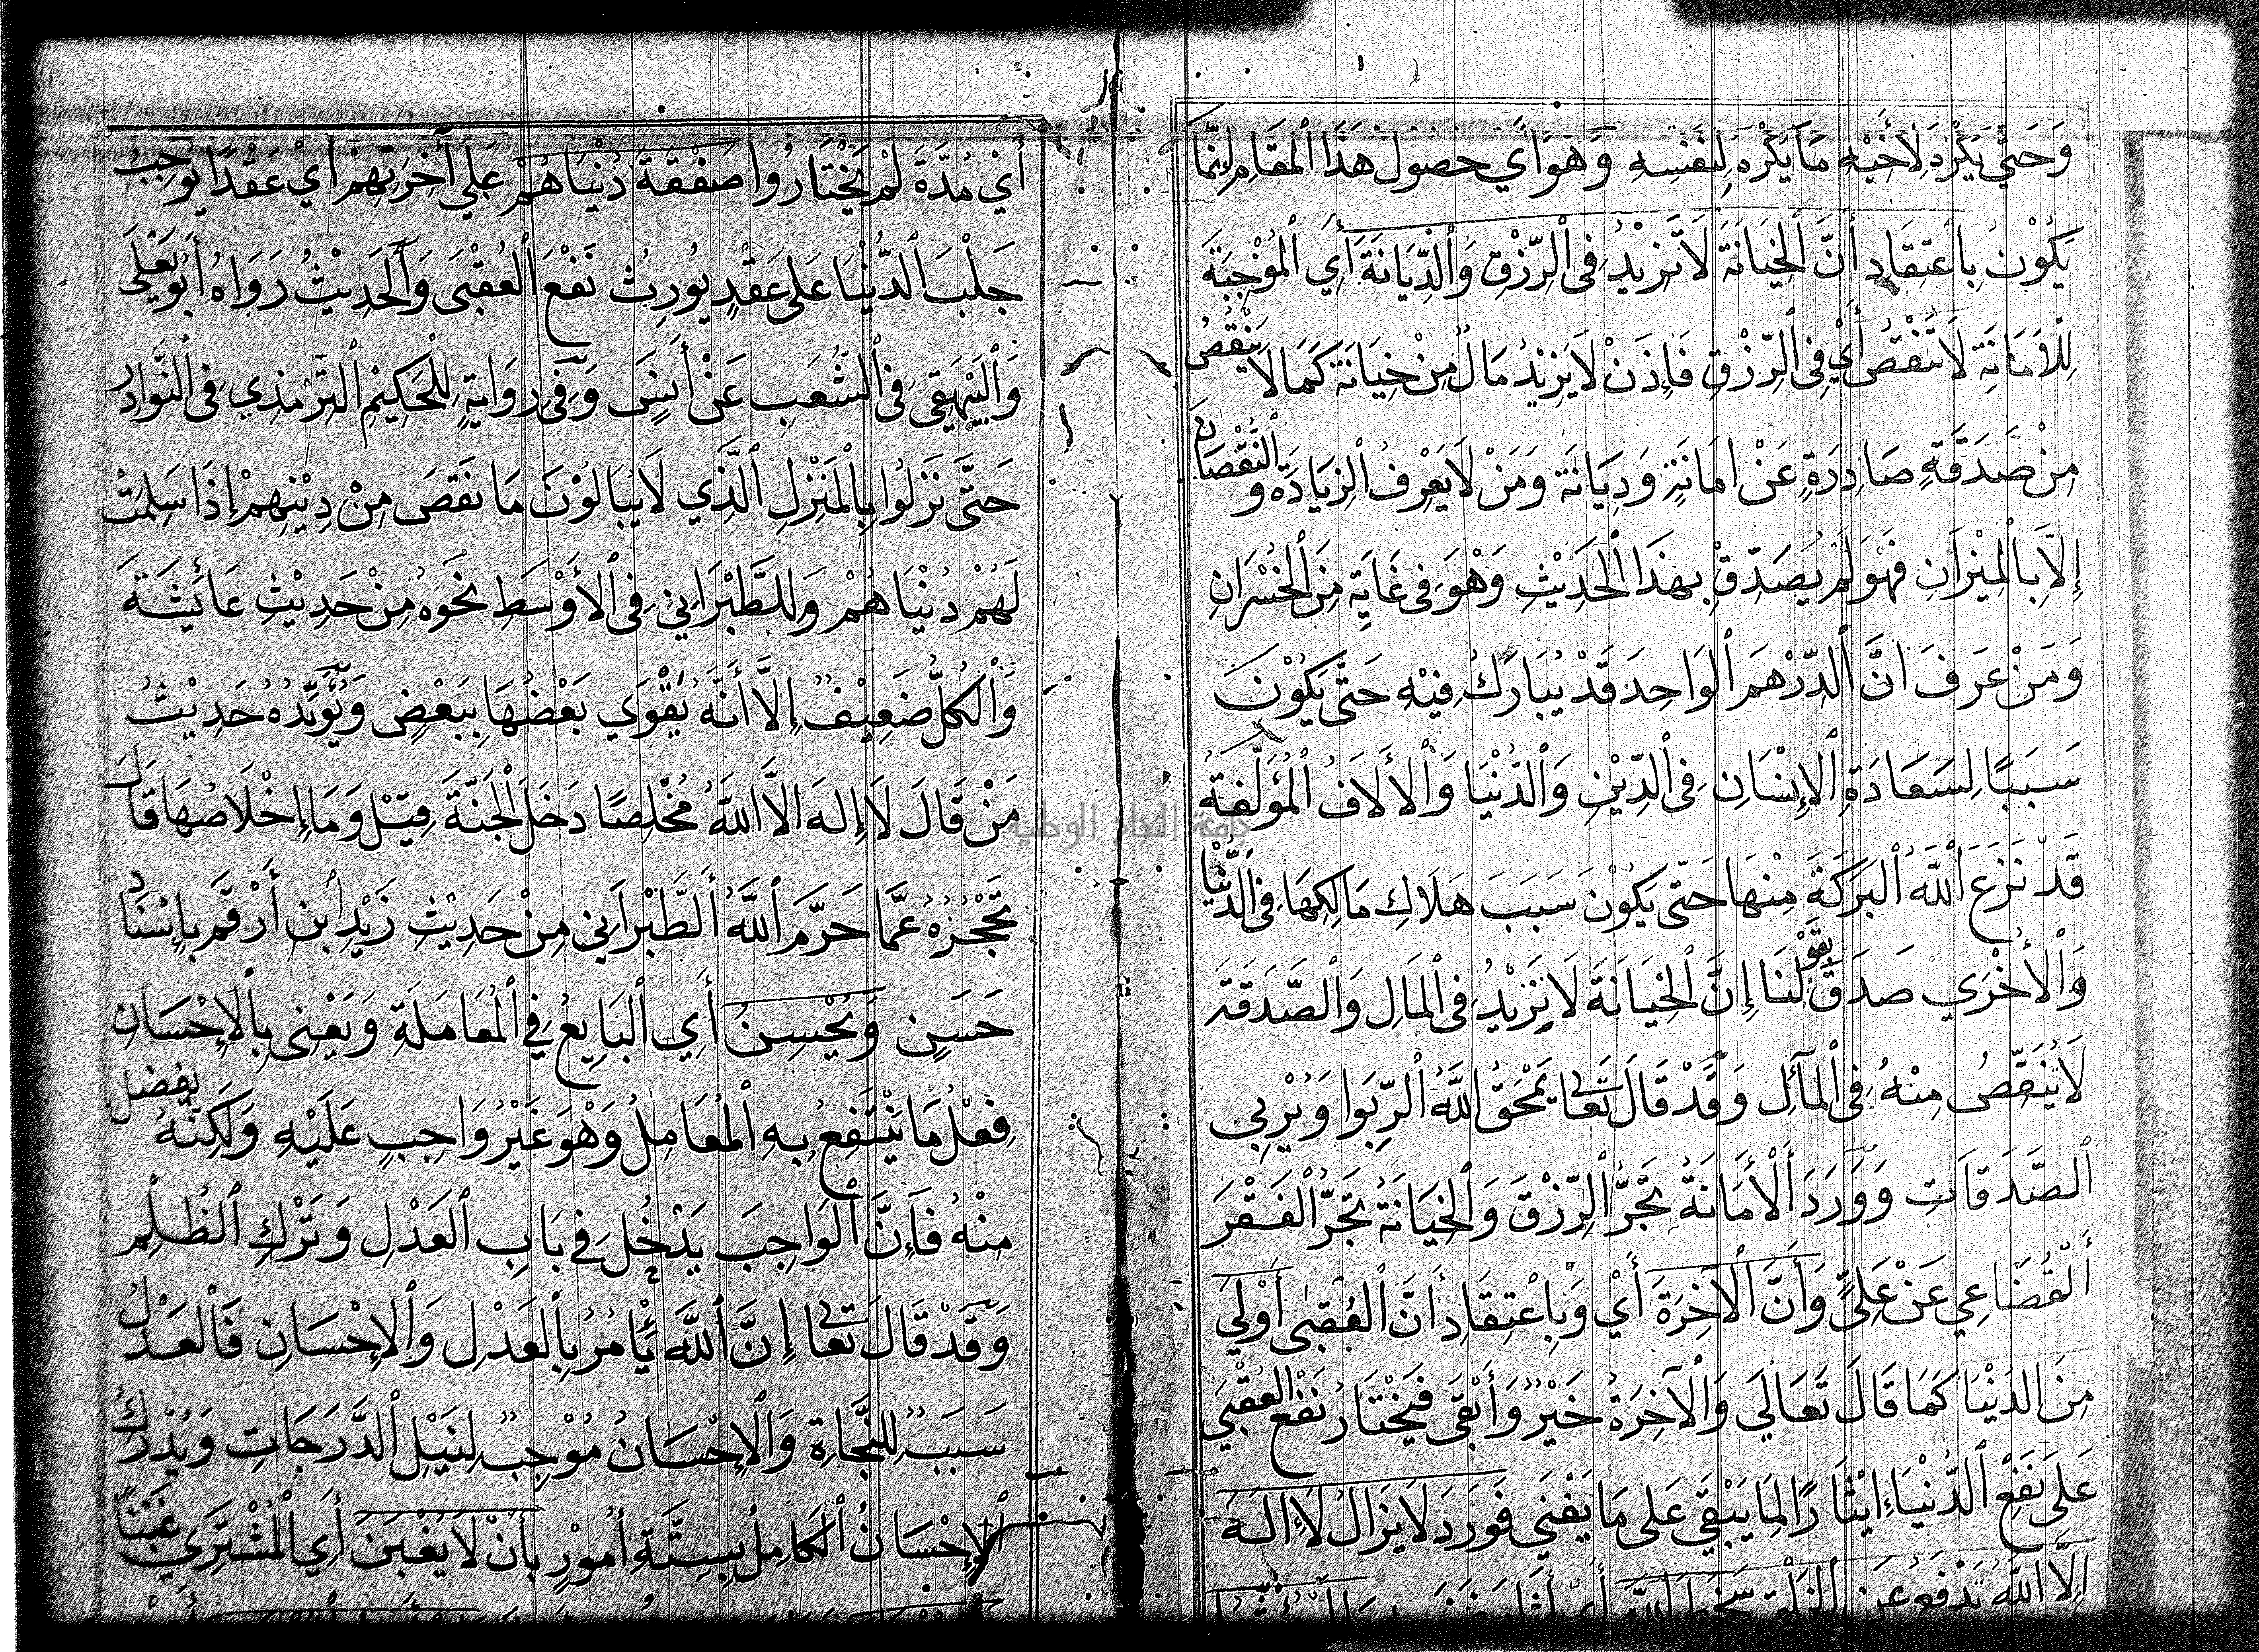 وَحَتَّى يَكْرَهَ لِأَخِيْهِ مَا يَكْرَهُ لِنَفْسِهِ وَهُوَ أَي حصُول هَذَا الْمقَامِ إِنَّمَا
يَكُوْنُ بِاعْتِقَادِ أَنَّ الْخِيَانَةَ لَا تَزِيْدُ فِى الرِّزْقِ وَالدِّيَانَةَ أَيِ الْمُوْجِبَةَ
لِلْأَمَانَةِ لَا تَنْقُصُ أَيْ فِى الرِّزْقِ فَإِذَنْ لَا يَزِيْدُ مَالٌ مِنْ خِيَانَةٍ كَمَا لَا يَنْقُصُ
مِنْ صَدَقَةٍ صَادِرَةٍ عَنْ امَانَةٍ وَدِيَانَة وَمَنْ لَا يَعْرِفُ الزِيَادَة وَ النُّقْصَانَ
إِلَّا بِالْمِيْزَانِ فَهْوَ لَمْ يُصَدِّقْ بِهذَا الْحَدِيْثِ وَهْوَ فِى غَايَةٍ مِنَ الْخُسْرَانِ
وَمَنْ عَرَفَ انَّ الدِّرْهَمَ الْوَاحِدَ قَدْ يُبَارَكُ فِيْهِ حَتَّى يَكُوْنَ
سَبَبًا لِسَعَادَةِ الْإِنْسَانِ فِى الدِّيْنِ وَالدُّنْيَا وَالْأَلَافُ الْمُؤَلَّفَةُ
قَدْ نَزَعَ اللَّهُ الْبَرَكَةَ مِنْهَا حَتَّى يَكُوْنَ سَبَبَ هَلَاكِ مَالِكِهَا فِى الدُّنْيَا
وَالْأُخْرَي صَدَقَ بِقَوْلِنَا إِنَّ الْخِيَانَةَ لَا تَزِيْدُ فِى الْمَالِ وَالصَّدَقَة
لَا يُنَقِّصُ مِنْهُ فِى الْمَآلِ وَقَدْ قَالَ تَعَالى يَمْحَقُ اللَّهُ الرِّبَوا وَيُرْبِى
الصَّدَقَاتِ وَوَرَدَ الْأَمَانَةُ تَجَرُّ الرِّزْقَ وَالْخِيَانَةُ تَجَرُّ الْفَقْرَ
الْقُضَاعِي عَنْ عَلِيٍّ وَأَنَّ الْآخِرَةَ أَيْ وَبِاعْتِقَادِ أَنَّ الْعُقْبَى أَوْلَى
مِنَ الدُّنْيَا كَمَا قَالَ تَعَالَي وَالْآخِرَةُ خَيْرٌ وَأَبْقَى فَيَخْتَارُ نَفْع الْعُقْبَي
عَلَى نَفْعِ الدُّنْيَاءِ ايْثَارًا لِمَا يَبْقَي عَلَى مَا يَفْنَي فَوَرَدَ لَا يَزَالُ لَا إِلَهَ
إِلَّا اللَّهُ تَدْفَعُ عَنِ الْخَلْقِ سَخَطَ اللَّهِ
أَيْ مُدَّةَ لَمْ يَخْتَارُوا صَفْقَةَ دُنْيَاهُمْ عَلَى أَخِرَتِهِمْ أَيْ عَقْدًا يُوْجِبُ
جَلْبَ الدُّنْيَا عَلَى عَقْدٍ يُورِثُ نَفْعَ الْعُقْبَى وَالْحَدِيْثُ رَوَاهُ أَبُو يَعْلَى
وَالْبَيْهَقِي فِى الشُّعَبِ عَنْ أَنَسٍ وَفِى رِوَايَةٍ لِلْحَكِيْمِ التِّرْمِذِي فِى النَّوَادِر
حَتَّى نَزَلُوا بِالْمَنْزِلِ الَّذِي لَا يُبَالُوْنَ مَا نَقَصَ مِنْ دِيْنِهِمْ إِذَا سَلِمَتْ
لَهُمْ دُنْيَاهُمْ وَلِلطَّبْرَانِيْ فِى الْأَوْسَطِ نَحْوه مِنْ حَدِيْثِ عَائِشَةَ
وَالْكُلُّ ضَعِيْفٌ إِلَّا أَنَّهُ يُقَوِّي بَعْضُهَا بِبَعْضٍ وَيُؤَيِّدُهُ حَدِيْثُ
مَنْ قَالَ لَا إِلهَ الَّا اللَّهُ مُخْلِصًا دَخَلَ الْجَنَّةَ قِيْلَ وَمَا إِخْلَاصُهَا قَالَ
تَحْجُزُهُ عَمَّا حَرَّمَ اللَّهُ الطَّبْرَانِي مِنْ حَدِيْثِ زَيْدِ ابن أَرْقَم بِإِسْنَادٍ
حَسَنٍ وَيُحْسِنُ أَيِ الْبَايِعُ فِي الْمُعَامَلَةِ وَيَعْنِى بِالْإِحْسَانِ
فِعْلُ مَا يَنْتَفِعُ بِهِ الْمُعَامِلُ وَهْوَ غَيْرُ وَاجِبٍ عَلَيْهِ وَلَكِنَّهُ يفضل
مِنْهُ فَإِنَّ الْوَاجِبَ يَدْخُلُ فِي بَابِ الْعَدْلِ وَتَرْكِ الظُّلْمِ
وَقَدْ قَالَ تَعَالى إِنَّ اللَّهَ يَأْمُرُ بِالْعَدْلِ وَالْإِحْسَانِ فَالْعَدْلُ
سَبَبٌ لِلنَّجَاةِ وَالْإِحْسَانُ مُوْجِبٌ لِنَيْلِ الدَّرَجَاتِ وَيُدْرَكُ
الْإِحْسَانُ الْكَامِلُ بِسِتَّةِ أُمُوْرٍ بِأَنْ لَا يَغْبِنَ أَيِ الْمُشْتَرِي غَبْنًا
جامعة النجاح الوطنية